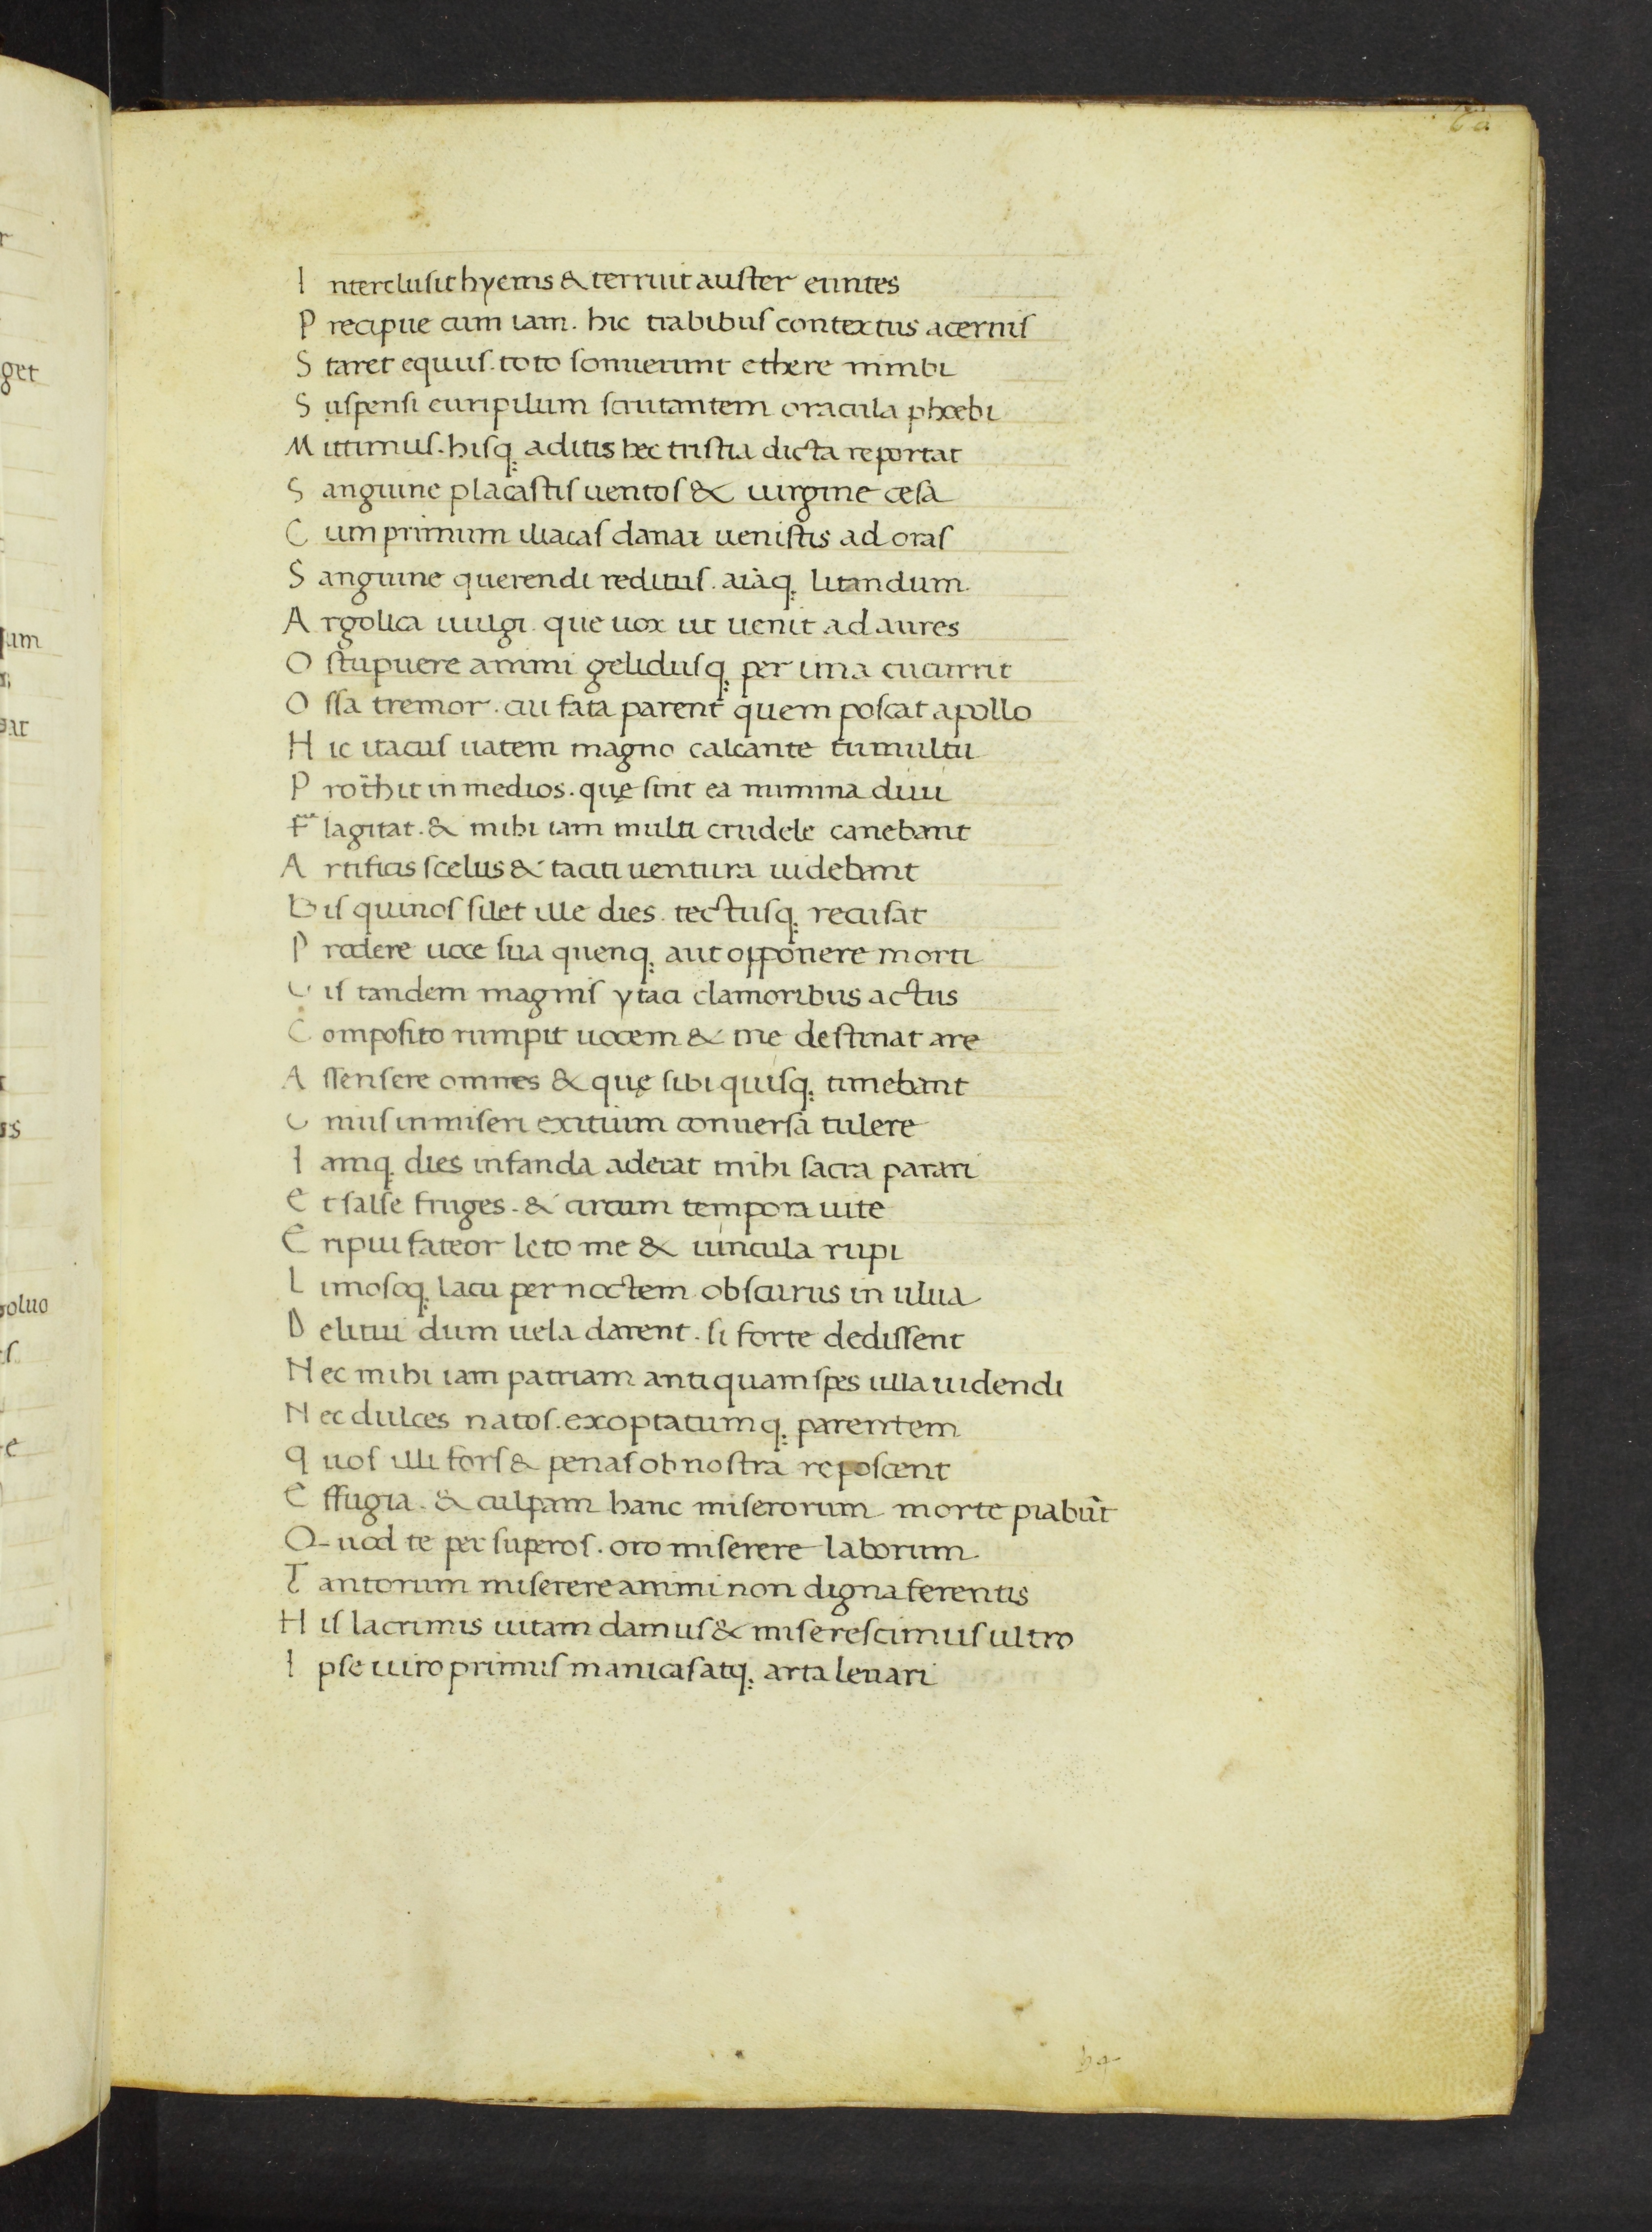 I nterclusit hyems & terruit auster euntes
P recipue cum iam. hic trabibus contextus acernis
S taret equus. toto sonuerunt ethere nimbi
S uspensi euripilum scrutantem oracula phoebi
M ittimus. hisq; aditis hec tristia dicta reportat
S anguine placastis uentos & uirgine cesa
C um primum iliacas danai uenistis ad oras
S anguine querendi reditus. aiaq; litandum
A rgolica uulgi que uox ut uenit ad aures
O stupuere animi gelidusq; per ima cucurrit
O ssa tremor. cui fata parent quem poscat apollo
H ic itacus uatem magno calcante tumultu
P rothit in medios. quę sint ea numina diui
F lagitat. & mihi iam multi crudele canebant
A rtificis scelus & taciti uentura uidebant
B is quinos silet ille dies. tectusq; recusat
P rodere uoce sua quenq; aut opponere morti
U is tandem magnis ytaci clamoribus actus
C omposito rumpit uocem & me destinat are
A ssensere omnes & quę sibi quisq; timebant
U nius in miseri exitium conuersa tulere
I amq; dies infanda aderat mihi sacra parari
E t salse fruges. & circum tempora uite
E ripui fateor leto me & uincula rupi
L imosoq; lacu per noctem obscurus in ulua
D elitui dum uela darent. si forte dedissent
N ec mihi iam patriam antiquam spes ulla uidendi
N ec dulces natos. exoptatumq; parentem
Q uos illi fors & penas ob nostra reposcent
E ffugia. & culpam hanc miserorum morte piabūt
Q uod te per superos. oro miserere laborum
T antorum miserere animi non digna ferentis
H is lacrimis uitam damus & miserescimus ultro
I pse uiro primus manicas atq; arta leuari
b 4